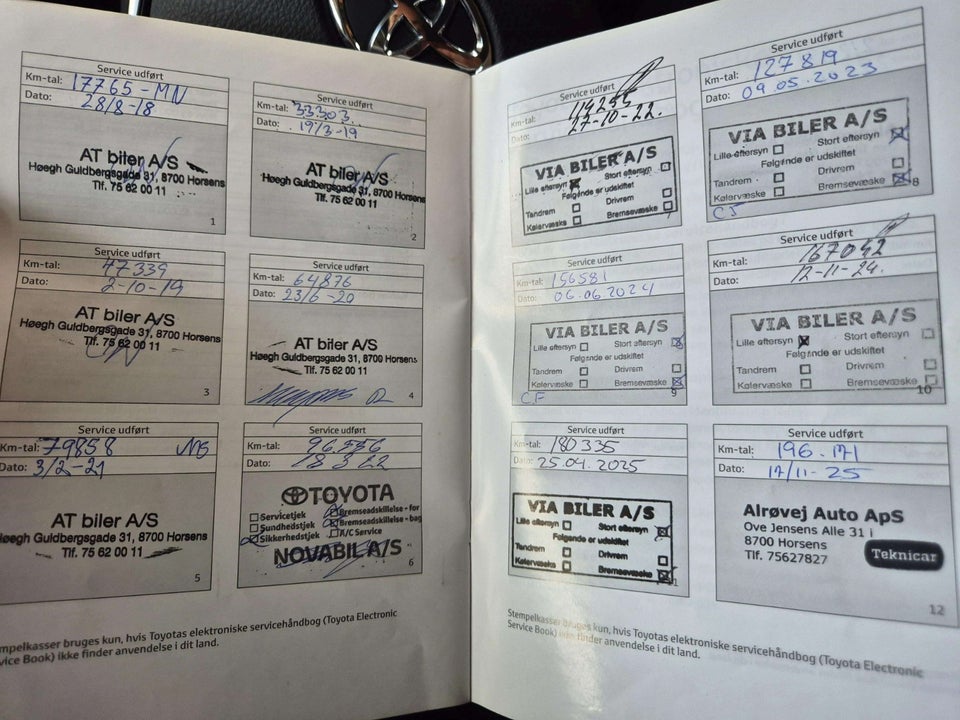 Service udført
Km-tal: 17765 - MN
Dato: 28/8-18
AT biler A/S
Høegh Guldbergsgade 31, 8700 Horsens
Tlf. 75 62 00 11
1
Service udført
Km-tal: 33.303
Dato: 19/3-19
AT biler A/S
Høegh Guldbergsgade 31, 8700 Horsens
Tlf. 75 62 00 11
2
Service udført
Km-tal: 47339
Dato: 2-10-19
AT biler A/S
Høegh Guldbergsgade 31, 8700 Horsens
Tlf. 75 62 00 11
3
Service udført
Km-tal: 64876
Dato: 23/6-20
AT biler A/S
Høegh Guldbergsgade 31, 8700 Horsens
Tlf. 75 62 00 11
4
Service udført
Km-tal: 79858
Dato: 3/2-21
AT biler A/S
Høegh Guldbergsgade 31, 8700 Horsens
Tlf. 75 62 00 11
5
Service udført
Km-tal: 96.556
Dato: 18 3 22
TOYOTA
Servicetjek Bremseadskillelse - for
Sundhedstjek Bremseadskillelse - bag
Sikkerhedstjek A/C Service
NOVABIL A/S
6
mpelkasser bruges kun, hvis Toyotas elektroniske servicehåndbog (Toyota Electronic
vice Book) ikke finder anvendelse i dit land.
Service udført
Km-tal:
Dato: 27-10-22.
VIA BILER A/S
Lille eftersyn Stort eftersyn
Følgende er udskiftet
Tandrem Drivrem
Kølervæske Bremsevæske
7
Service udført
Km-tal: 127819
Dato: 09.05.2023
VIA BILER A/S
Lille eftersyn Stort eftersyn
Følgende er udskiftet
Tandrem Drivrem
Kølervæske Bremsevæske
8
Service udført
Km-tal: 156581
Dato: 06.06.2024
VIA BILER A/S
Lille eftersyn Stort eftersyn
Følgende er udskiftet
Tandrem Drivrem
Kølervæske Bremsevæske
CF 9
Service udført
Km-tal: 167042
Dato: 12-11-24.
VIA BILER A/S
Lille eftersyn Stort eftersyn
Følgende er udskiftet
Tandrem Drivrem
Kølervæske Bremsevæske
10
Service udført
Km-tal: 180335
Dato: 25.04.2025
VIA BILER A/S
Lille eftersyn Stort eftersyn
Følgende er udskiftet
Tandrem Drivrem
Kølervæske Bremsevæske
Service udført
Km-tal: 196.171
Dato: 17/11-25
Alrøvej Auto ApS
Ove Jensens Alle 31 i
8700 Horsens
Tlf. 75627827
Teknicar
12
Stempelkasser bruges kun, hvis Toyotas elektroniske servicehåndbog (Toyota Electronic
Service Book) ikke finder anvendelse i dit land.